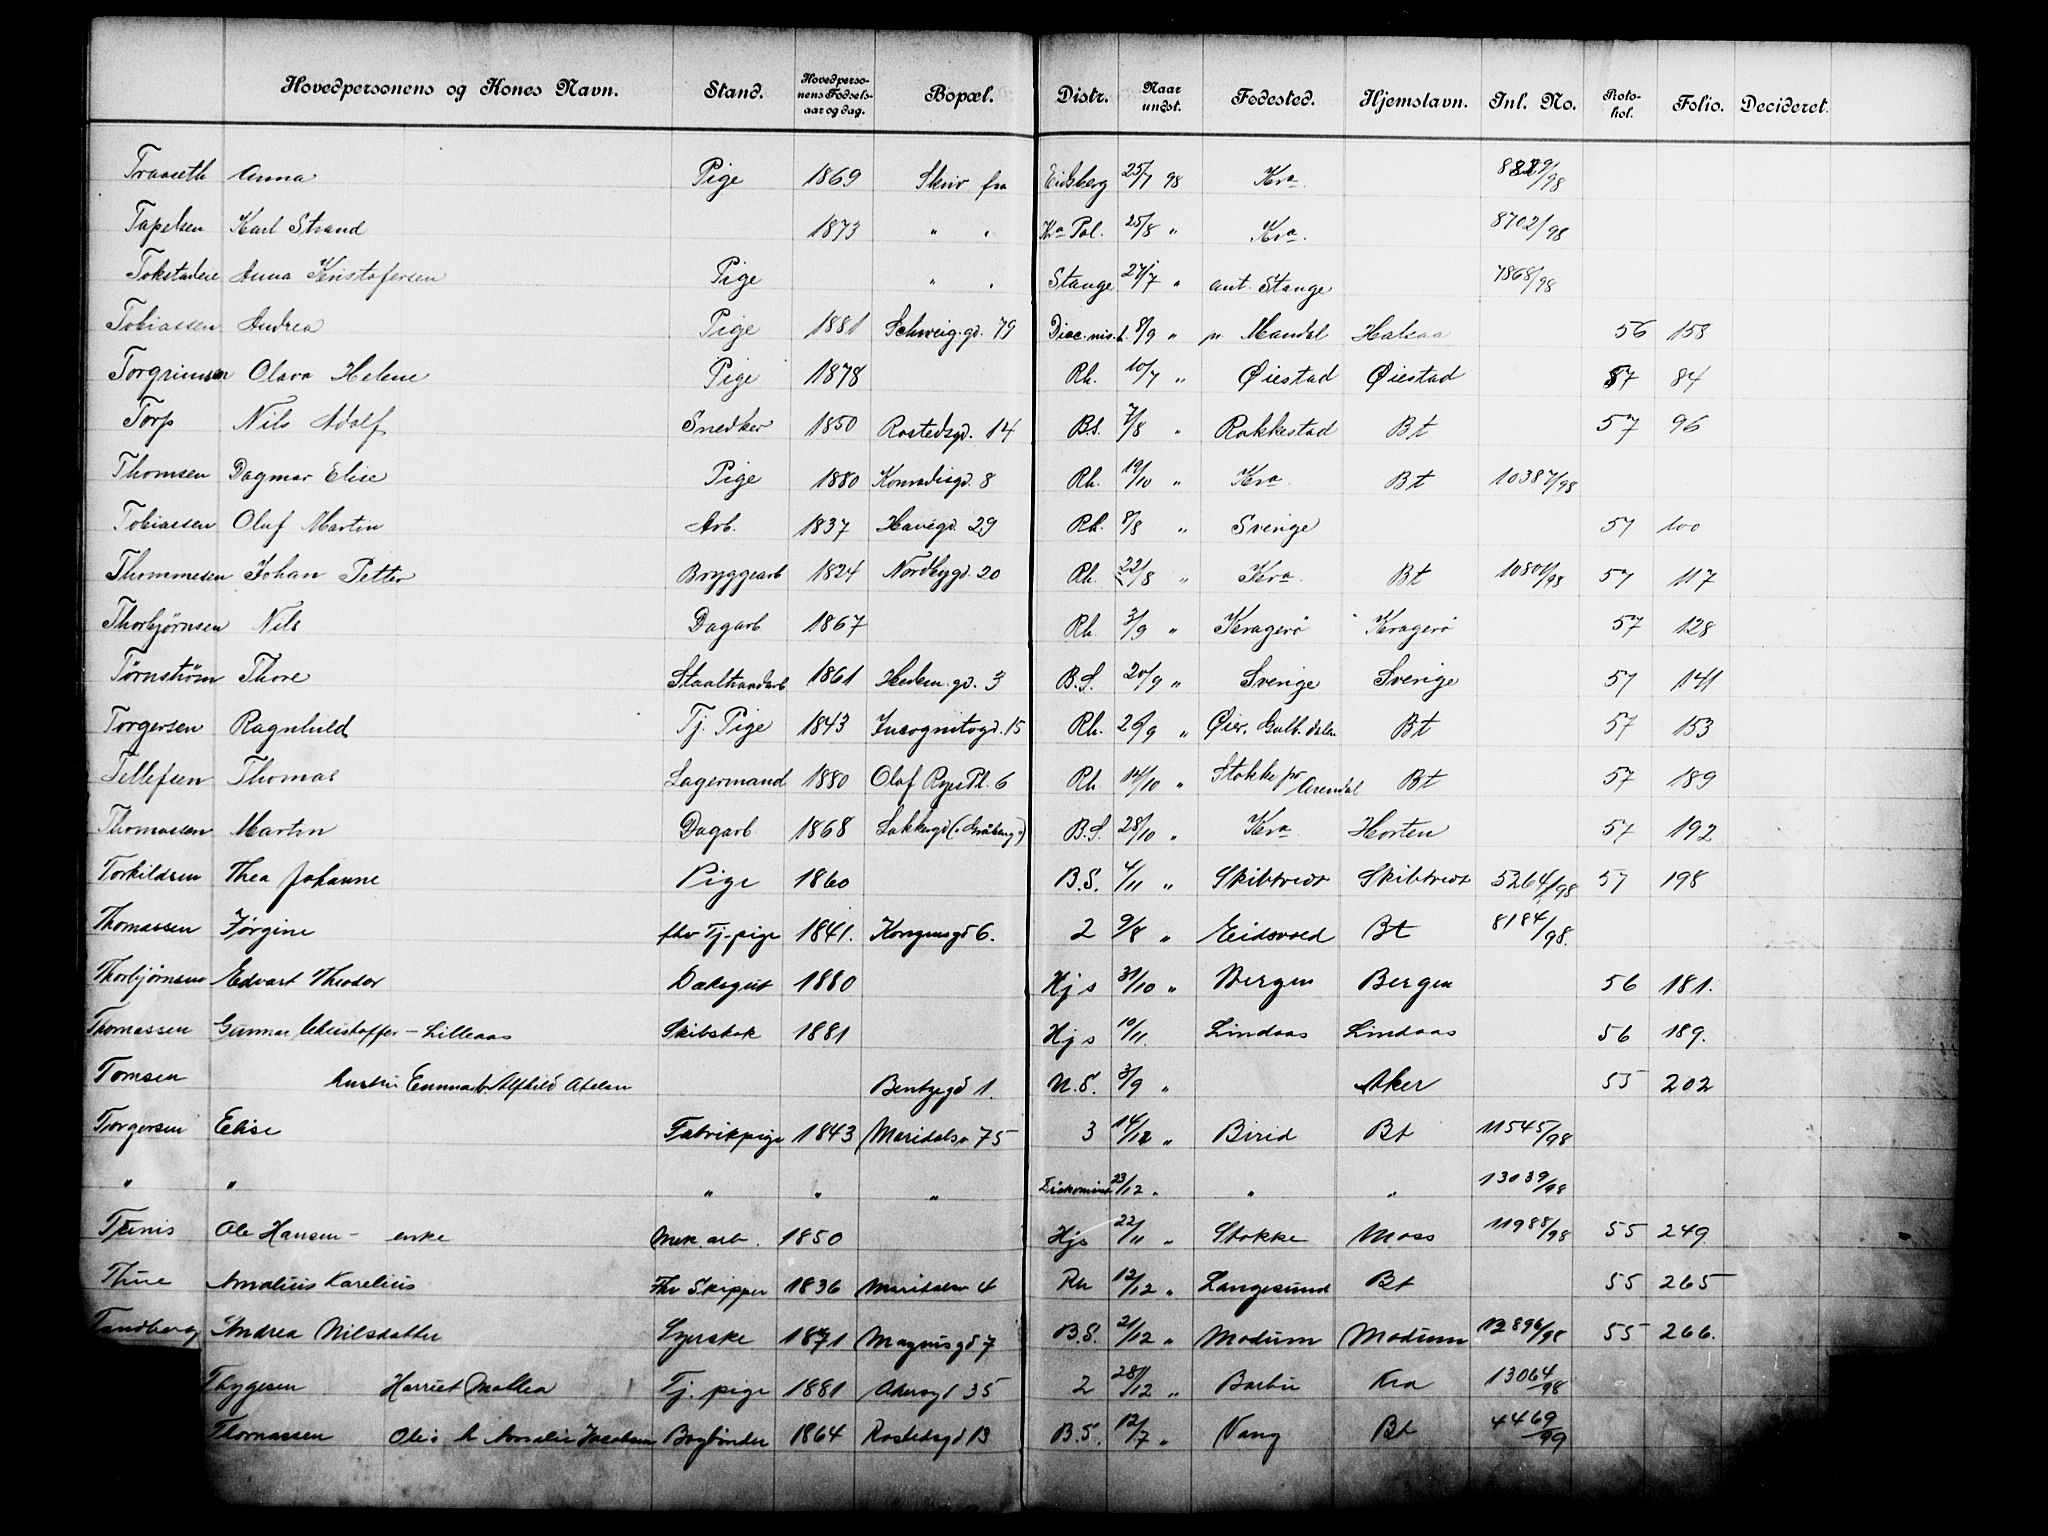 Hovedpersonens og Kones Navn. Stand. Hovedpersonens Fødselsaar og dag. Bopæl. Distr. Naar undst. Fødested. Hjemstavn. Inl. No. Protokol. Folio. Decideret.
Traaseth Anna Pige 1869 Skriv fra Eidsberg 25/7 98 Kra. /98
Tapelsen Karl Strand 1873 " " Kra Pol. 25/8 " Kra. 8702/98
Tokstadeie Anna Kristofersen Pige " " Stange 27/7 " ant. Stange 7868/98
Tobiassen Andrea Pige 1881 Schweig.gd. 79 8/9 " pr Mandal Halsaa 56 158
Torgrimsen Olava Helene Pige 1878 Rh. 10/7 " Øiestad Øiestad 57 84
Torp Nils Adolf Snedker 1850 Rostedsgd. 14 B.S. 7/8 " Rakkestad Bt 57 96
Thomsen Dagmar Elise Pige 1880 Konradisgd. 8 Rh. 19/10 " Kra Bt 10387/98
Tobiassen Oluf Martin Arb. 1837 Havegd. 29 Rh. 8/8 " Sverige 57 100
Thommesen Johan Petter Bryggearb 1824 Nordbygd. 20 Rh. 22/8 " Kra Bt 10801/98 57 117
Thorbjørnsen Nils Dagarb 1867 Rh. 3/9 " Kragerø Kragerø 57 128
Tørnstrøm Thore Staaltraadarb 1861 gd. 3 B.S. 20/9 " Sverige Sverige 57 141
Torgersen Ragnhild Tj. Pige 1843 Incognitogd. 15 Rh. 26/9 " Øier, Gulb.dalen Bt 57 153
Tellefsen Thomas Lagermand 1880 Olaf Ryes Pl. 6 Rh 14/10 " Stokke pr Arendal Bt 57 189
Thomassen Martin Dagarb 1868 Lakkegd B.S. 28/10 " Kra Horten 57 192
Torkildsen Thea Johanne Pige 1860 B.S. 4/11 " Skibtvedt Skibtvedt 5264/98 57 198
Thomassen Jørgine fhv Tj-pige 1841. Kongensgd 6. 2 9/8 " Eidsvold Bt 8184/98.
Thorbjørnsen Edvart Theodor Dæksgut 1880 Hjs 31/10 " Bergen Bergen 56 181.
Thomassen Gunnar Christoffer - Lilleaas Skibskok 1881 Hjs 10/11 Lindaas Lindaas 56 189.
Tomsen Alfhild Bentsegd 1. N.S. 3/9 " Aker 55 202
Torgersen Elise Fabrikpige 1843 Maridalsv 75 3 14/12 " Birid Bt 11545/98
" " " " " 23/12 " " " 13039/98
Tunis Ole Hansen - enke Mek. arb. 1850 Hjs 22/11 " Stokke Moss 11988/98 55 249.
Thue Amalius Karelius Fhv Skipper 1836 Maridalsv 4 Rh 12/12 " Langesund Bt 55 265
Tandberg Andrea Nilsdatter Syerske 1871 Magnusgd 7 B.S. 21/12 " Modum Modum 12896/98 55 266.
Thygesen Harriet Mathea Tj. pige 1881 Akersgt 35 2 28/12 " Barbu Kra 13064/98
Thomassen Amalie Jacobsen Bogbinder 1864 Rostedsgd 13 B.S. 12/7 " Vang Bt 4469/99